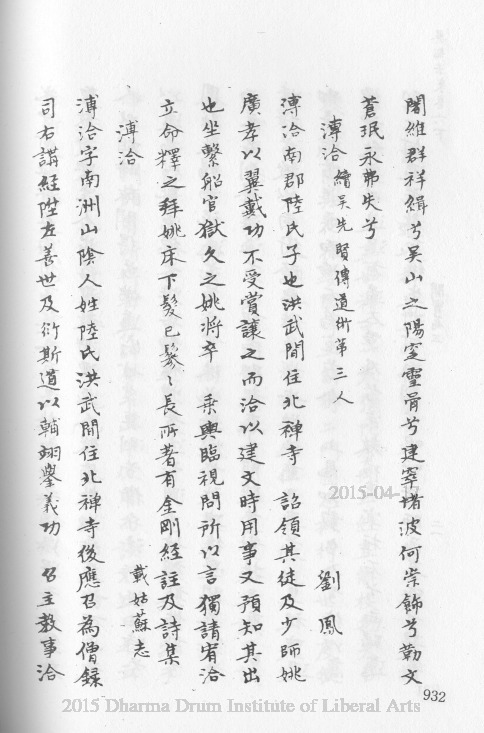 闍維群祥緝兮吳山之陽窆靈骨兮建窣堵波何崇飾兮勒文
蒼珉永弗失兮
溥洽 續吳先賢傳道術第三人 劉鳳
溥洽南郡陸氏子也洪武間住北禪寺 詔領其徒及少師姚
廣孝以翼戴功不受賞讓之而洽以建文時用事又預知其出
也坐繫船官獄久之姚將卒 乘輿臨視問所以言獨請宥洽
立命釋之拜姚床下髮已鬖鬖長所著有金剛經註及詩集
溥洽 載姑蘇志
溥洽字南洲山陰人姓陸氏洪武間住北禪寺後應召為僧錄
司右講經陞左善世及衍斯道以輔翊舉義功 召主教事洽
932
2015-04-
2015 Dharma Drum Institute of Liberal Arts